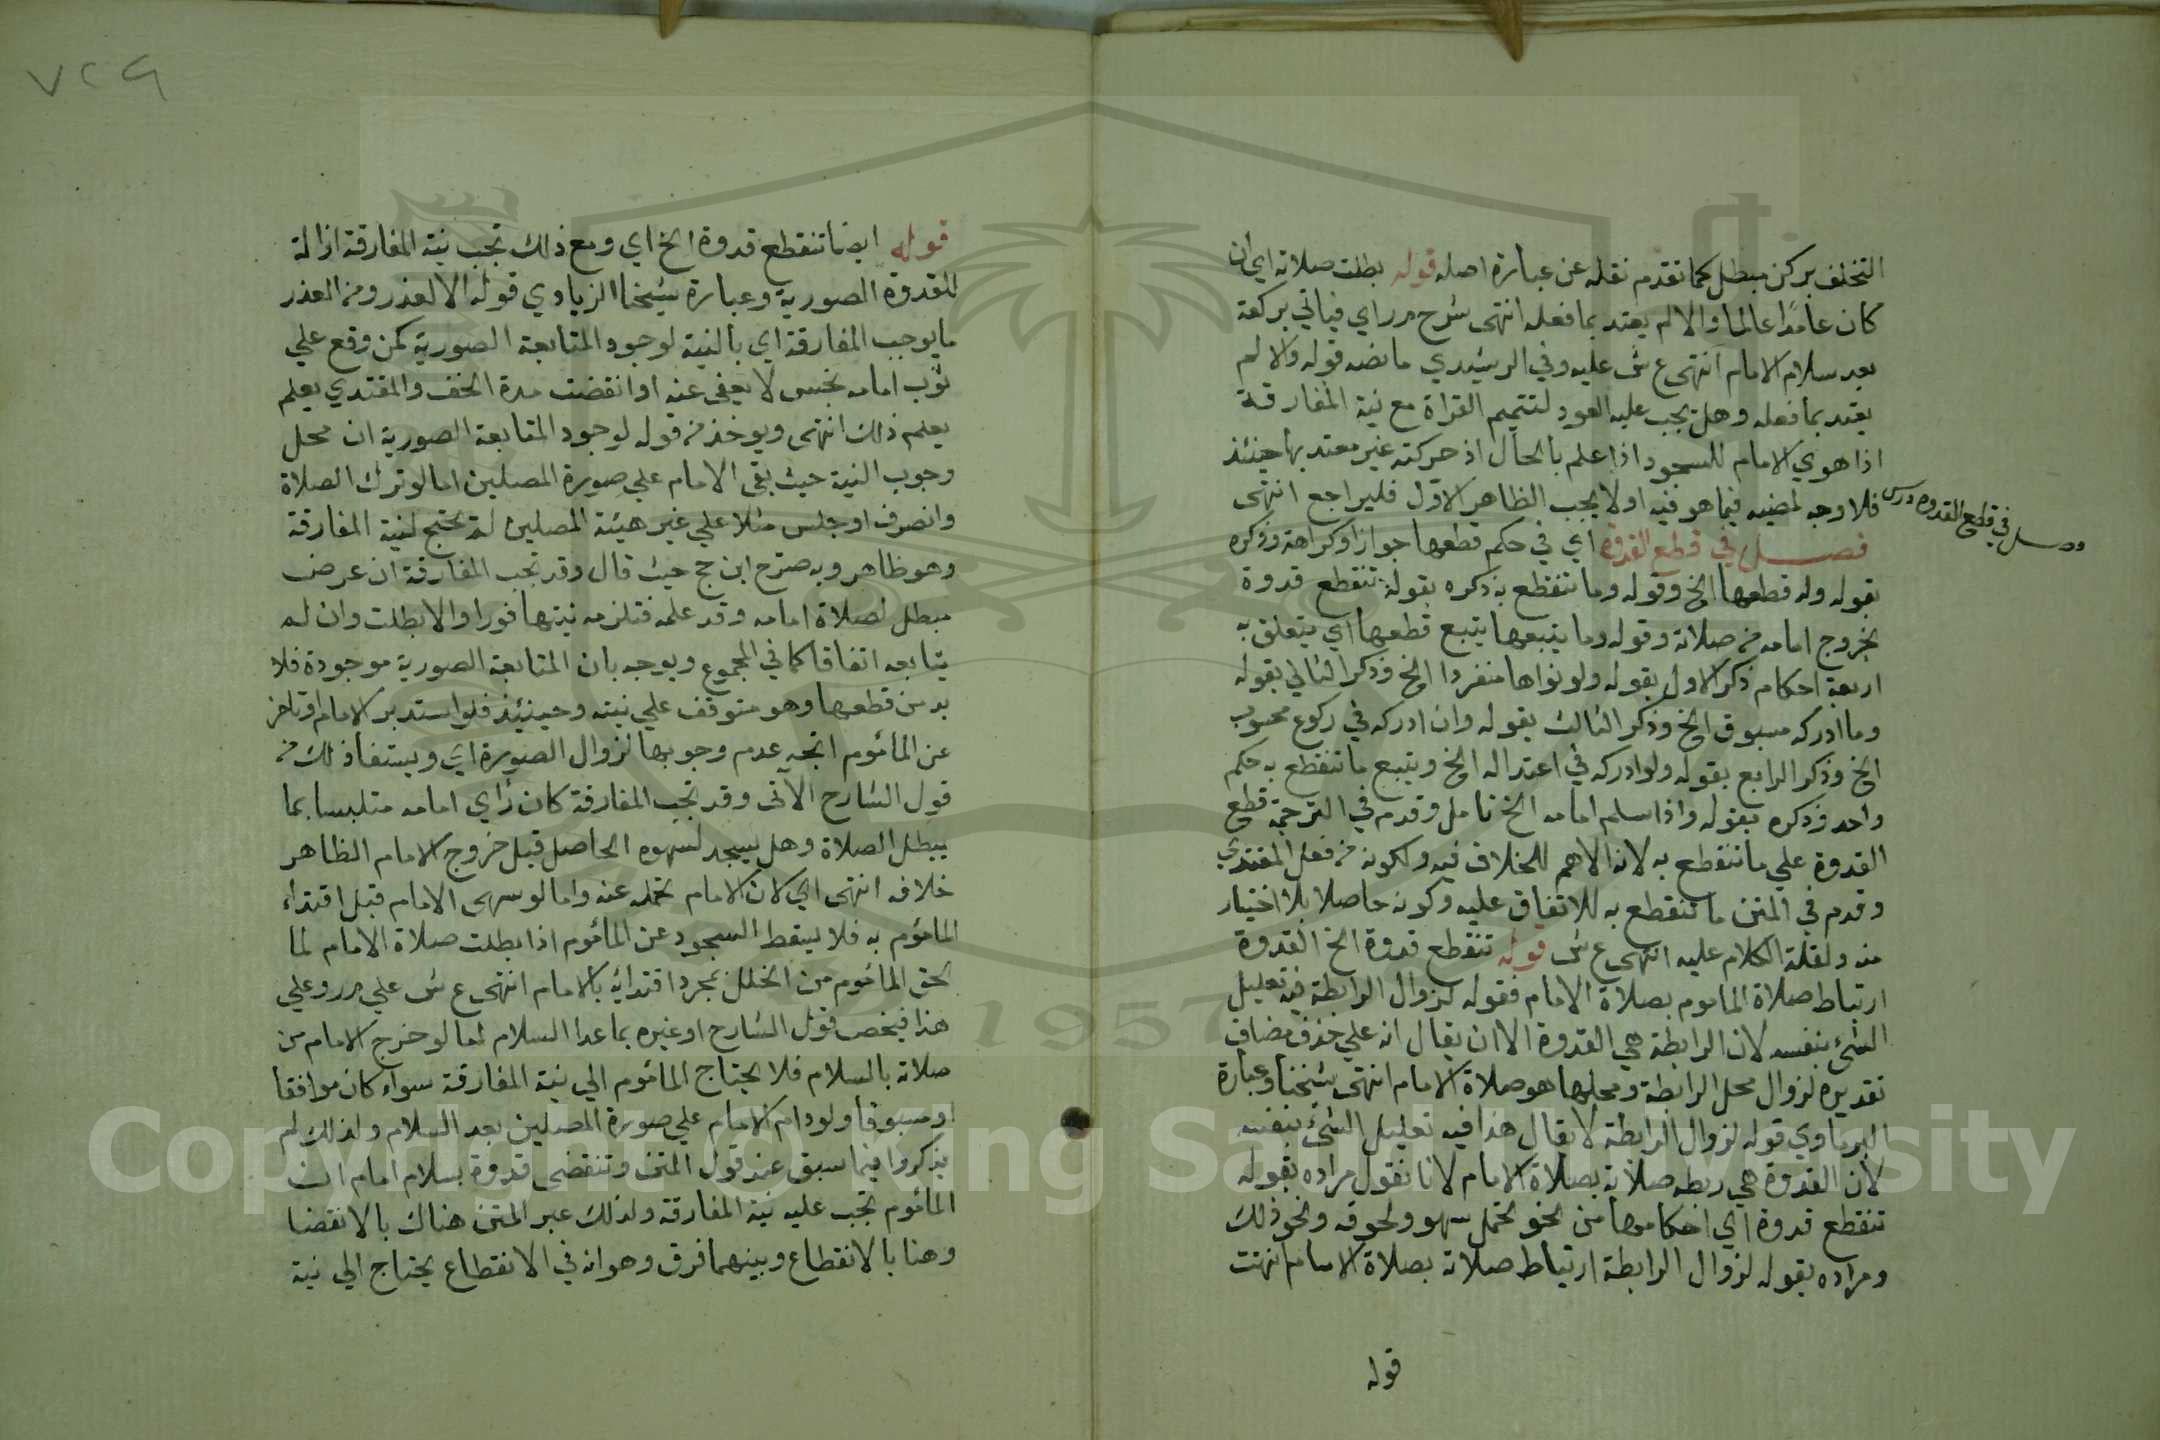 التخلف بركن مبطل كما تقدم نقله عن عبارة اصله قوله بطلت صلاته اي ان
كان عامدا عالما والا لم يعتد بما فعله انتهى شرح م ر اي فياتي بركعة
بعد سلام الامام انتهى ع ش عليه وفي الرشيدي ما نصه قوله والا لم
يعتد بما فعله وهل يجب عليه العود لتتميم القراة مع نية المفارقة
اذا هوي الامام للسجود اذا علم بالحال اذ حركته غير معتد بها حينئذ
فلا وجه لمضيه فيما هو فيه او لا يجب الظاهر الاول فليراجع انتهى
فصل في قطع القدوه درس
فصل في قطع القدوة اي في حكم قطعها جوازا وكراهة وذكره
بقوله وله قطعها الخ وقوله وما تنقطع به ذكره بقوله تنقطع قدوة
بخروج امامه من صلاته وقوله وما يتبعها يتبع قطعها اي يتعلق به
اربعة احكام ذكر الاول بقوله ولو نواها منفردا الخ وذكر الثاني بقوله
وما ادركه مسبوق الخ وذكر الثالث بقوله وان ادركه في ركوع محسوب
الخ وذكر الرابع بقوله ولو ادركه في اعتداله الخ ويتبع ما تنقطع به حكم
واحد وذكره بقوله واذا سلم امامه الخ تامل وقدم في الترجمة قطع
القدوة علي ما تنقطع به لانه الاهم للخلاف فيه ولكونه من فعل المقتدي
وقدم في المتن ما تنقطع به للاتفاق عليه وكونه حاصلا بلا اختيار
منه ولقلة الكلام عليه انتهى ع ش قوله تنقطع قدوة الخ القدوة
ارتباط صلاة الماموم بصلاة الامام فقوله لزوال الرابطة فيه تعليل
الشئ بنفسه لان الرابطة هي القدوة الا ان يقال انه علي حذف مضاف
تقديره لزوال محل الرابطة ومحلها هو صلاة الامام انتهى شيخنا وعبارة
البرماوي قوله لزوال الرابطة لا يقال هذا فيه تعليل الشئ بنفسه
لان القدوة هي ربط صلاته بصلاة الامام لانا نقول مراده بقوله
تنقطع قدوة اي احكامها من نحو تحمل سهو ولحوقه ونحو ذلك
ومراده بقوله لزوال الرابطة ارتباط صلاته بصلاة الامام انتهت
قوله
٧٢٩
قوله ايضا تنقطع قدوة الخ اي ومع ذلك تجب نية المفارقة ازالة
للقدوة الصورية وعبارة شيخنا الزيادي قوله الا لعذر ومن العذر
ما يوجب المفارقة اي بالنية لوجود المتابعة الصورية كمن وقع علي
ثوب امامه نجس لا يعفى عنه او انقضت مدة الخف والمقتدي يعلم
يعلم ذلك انتهى ويوخذ من قوله لوجود المتابعة الصورية ان محل
وجوب النية حيث بقى الامام علي صورة المصلين اما لو ترك الصلاة
وانصرف او جلس مثلا علي غير هيئة المصلين لم يحتج لنية المفارقة
وهو ظاهر وبه صرح ابن حج حيث قال وقد تجب المفارقة ان عرض
مبطل لصلاة امامه وقد علمه فتلزمه نيتها فورا والا بطلت وان لم
يتابعه اتفاقا كما في المجموع ويوجه بان المتابعة الصورية موجودة فلا
بد من قطعها وهو متوقف علي نيته وحينئذ فلو استدبر الامام او تاخر
عن المأموم اتجه عدم وجوبها لزوال الصورة اي ويستفاد ذلك من
قول الشارح الآتي وقد تجب المفارقة كان رأي امامه متلبسا بما
يبطل الصلاة وهل يسجد لسهوه الحاصل قبل خروج الامام الظاهر
خلافه انتهى اي لان الامام تحمله عنه واما لو سهى الامام قبل اقتداء
المأموم به فلا يسقط السجود عن المأموم اذا بطلت صلاة الامام لما
لحق المأموم من الخلل بمجرد اقتدائه بالامام انتهى ع ش علي م ر وعلي
هذا فيخص قول الشارح او غيره بما عدا السلام اما لو خرج الامام من
صلاته بالسلام فلا يحتاج المأموم الي نية المفارقة سواء كان موافقا
او مسبوقا ولو دام الامام علي صورة المصلين بعد السلام ولذلك لم
يذكروا فيما سبق عند قول المتن وتنقضي قدوة بسلام امام ان
المأموم تجب عليه نية المفارقة ولذلك عبر المتن هناك بالانقضا
وهنا بالانقطاع وبينهما فرق وهو انه في الانقطاع يحتاج الي نية
1957
Copyright © King Saud University